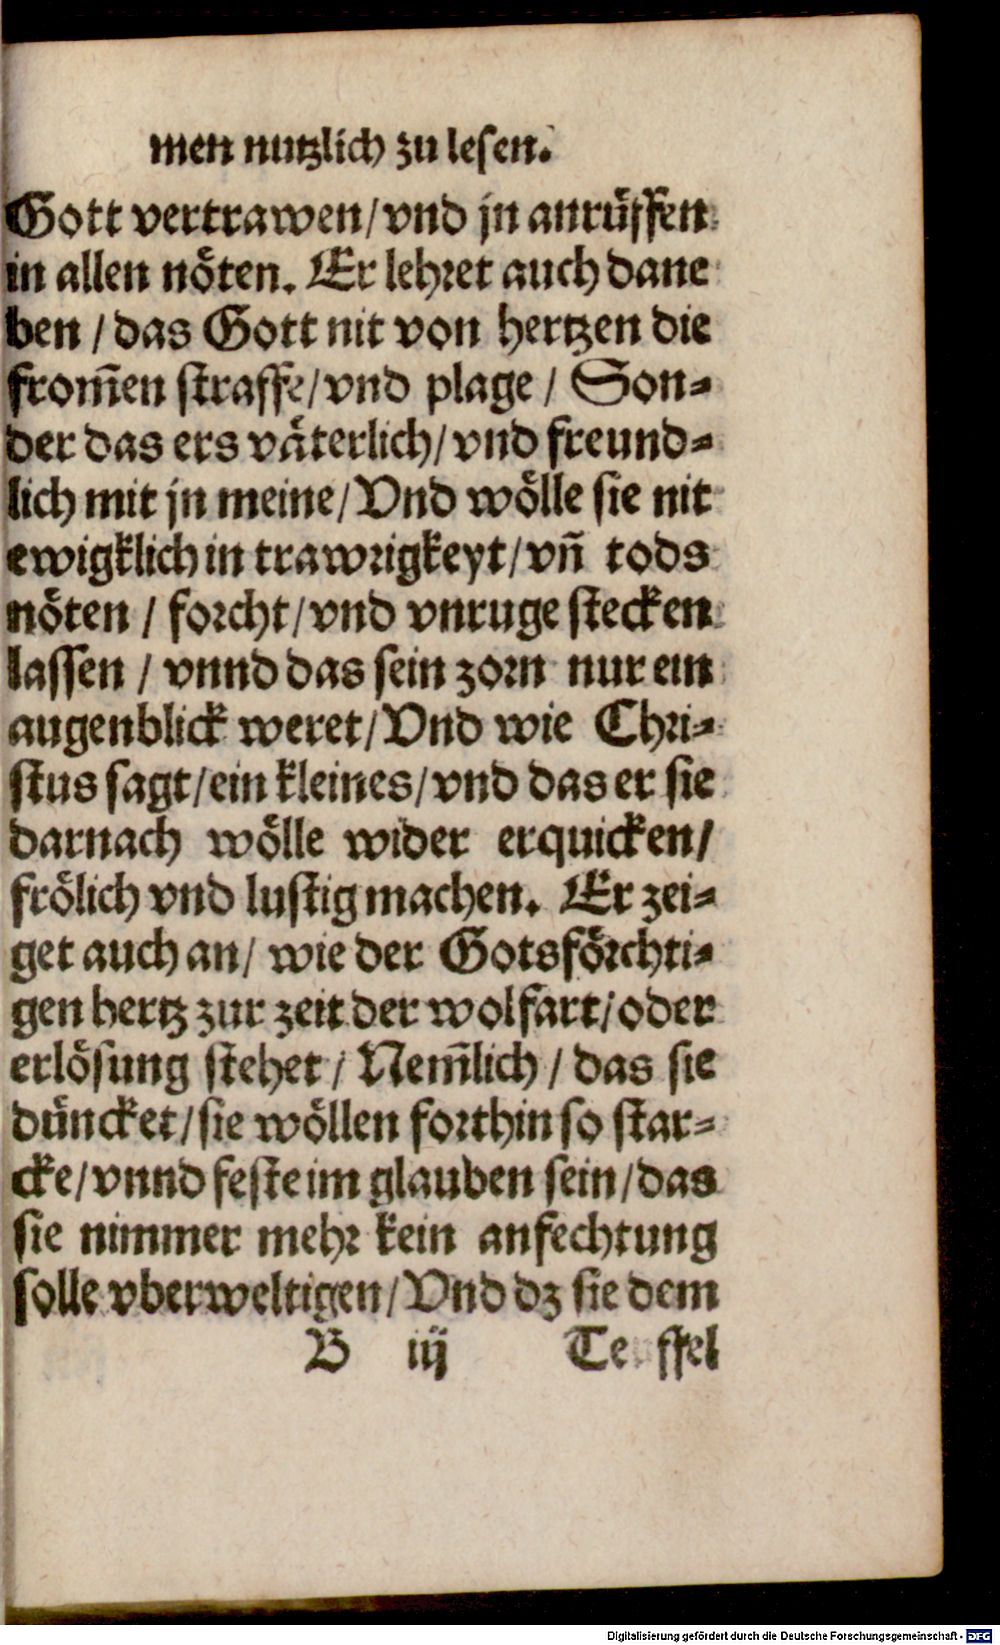 men nutzlich zu lesen.
Gott vertrawen/ vnd jn anrüffen
in allen nöten. Er lehret auch dane
ben / das Gott nit von hertzen die
from̃en straffe/ vnd plage / Son⸗
der das ers väterlich/ vnd freund⸗
lich mit jn meine/ Vnd wölle sie nit
ewigklich in trawrigkeyt/ vñ tods
nöten / forcht/ vnd vnruge stecken
lassen / vnnd das sein zorn nur ein
augenblick weret/ Vnd wie Chri⸗
stus sagt/ ein kleines/ vnd das er sie
darnach wölle wider erquicken/
frölich vnd lustig machen. Er zei⸗
get auch an/ wie der Gotsförchti⸗
gen hertz zur zeit der wolfart/ oder
erlösung stehet / Nem̃lich / das sie
düncket/ sie wöllen forthin so star⸗
cke/ vnnd feste im glauben sein/ das
sie nimmer mehr kein anfechtung
solle vberweltigen/ Vnd dz sie dem
B iij Teuffel
Digitalisierung gefördert durch die Deutsche Forschungsgemeinschaft - DFG